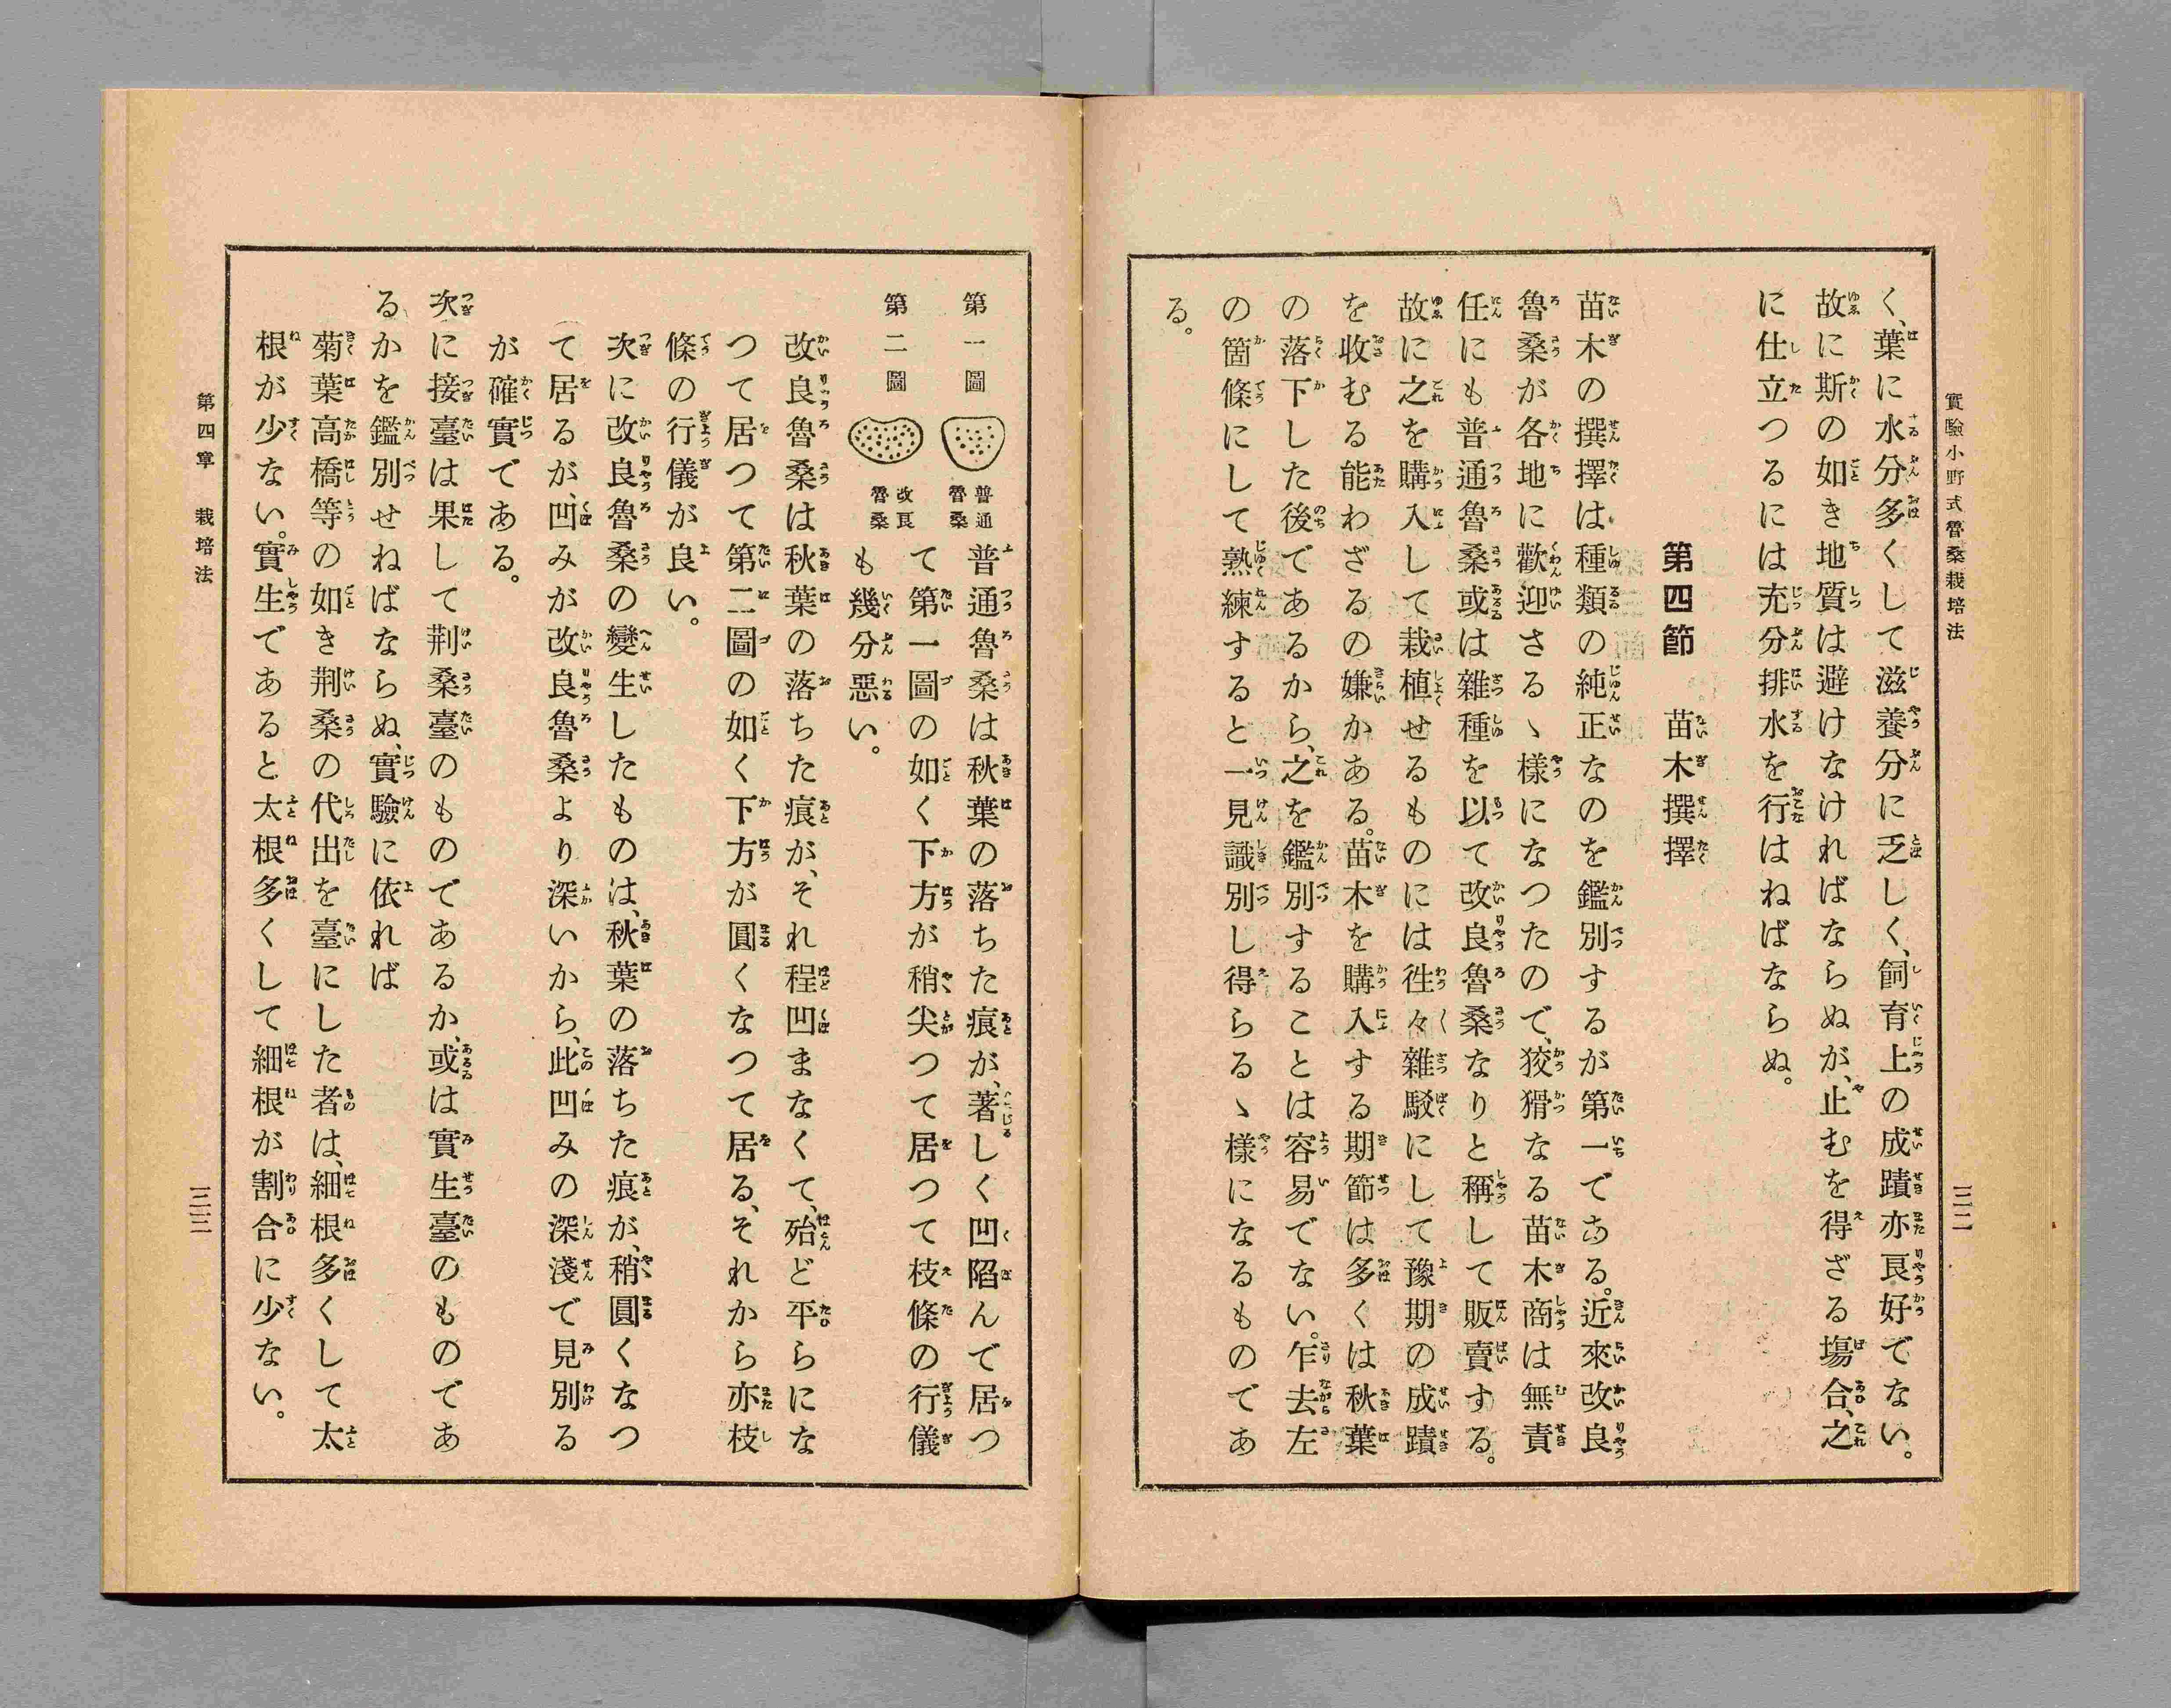 實驗小野式魯桑栽培法
三二
く、葉に水分多くして滋養分に乏しく、飼育上の成蹟亦良好でない。
故に斯の如き地質は避けなければならぬが、止むを得ざる塲合、之
に仕立つるには充分排水を行はねばならぬ。
第四節 苗木撰擇
苗木の撰擇は種類の純正なのを鑑別するが第一である。近來改良
魯桑が各地に歡迎さるゝ樣になつたので、狡猾なる苗木商は無責
任にも普通魯桑或は雜種を以て改良魯桑なりと稱して販賣する。
故に之を購入して栽植せるものには徃々雜駁にして豫期の成蹟
を收むる能わざるの嫌かある。苗木を購入する期節は多くは秋葉
の落下した後であるから、之を鑑別することは容易でない。乍去左
の箇條にして熟練すると一見識別し得らるゝ樣になるものであ
る。
第一圖
普通魯桑
第二圖
改良魯桑
普通魯桑は秋葉の落ちた痕が、著しく凹陷んで居つ
て第一圖の如く下方が稍尖つて居つて枝條の行儀
も幾分惡い。
改良魯桑は秋葉の落ちた痕が、それ程凹まなくて、殆ど平らにな
つて居つて第二圖の如く下方が圓くなつて居る、それから亦枝
條の行儀が良い。
次に改良魯桑の變生したものは、秋葉の落ちた痕が、稍圓くなつ
て居るが、凹みが改良魯桑より深いから、此凹みの深淺で見別る
が確實である。
次に接臺は果して荆桑臺のものであるか、或は實生臺のものであ
るかを鑑別せねばならぬ、實驗に依れば
菊葉高橋等の如き荆桑の代出を臺にした者は、細根多くして太
根が少ない。實生であると太根多くして細根が割合に少ない。
第四章 栽培法
三三